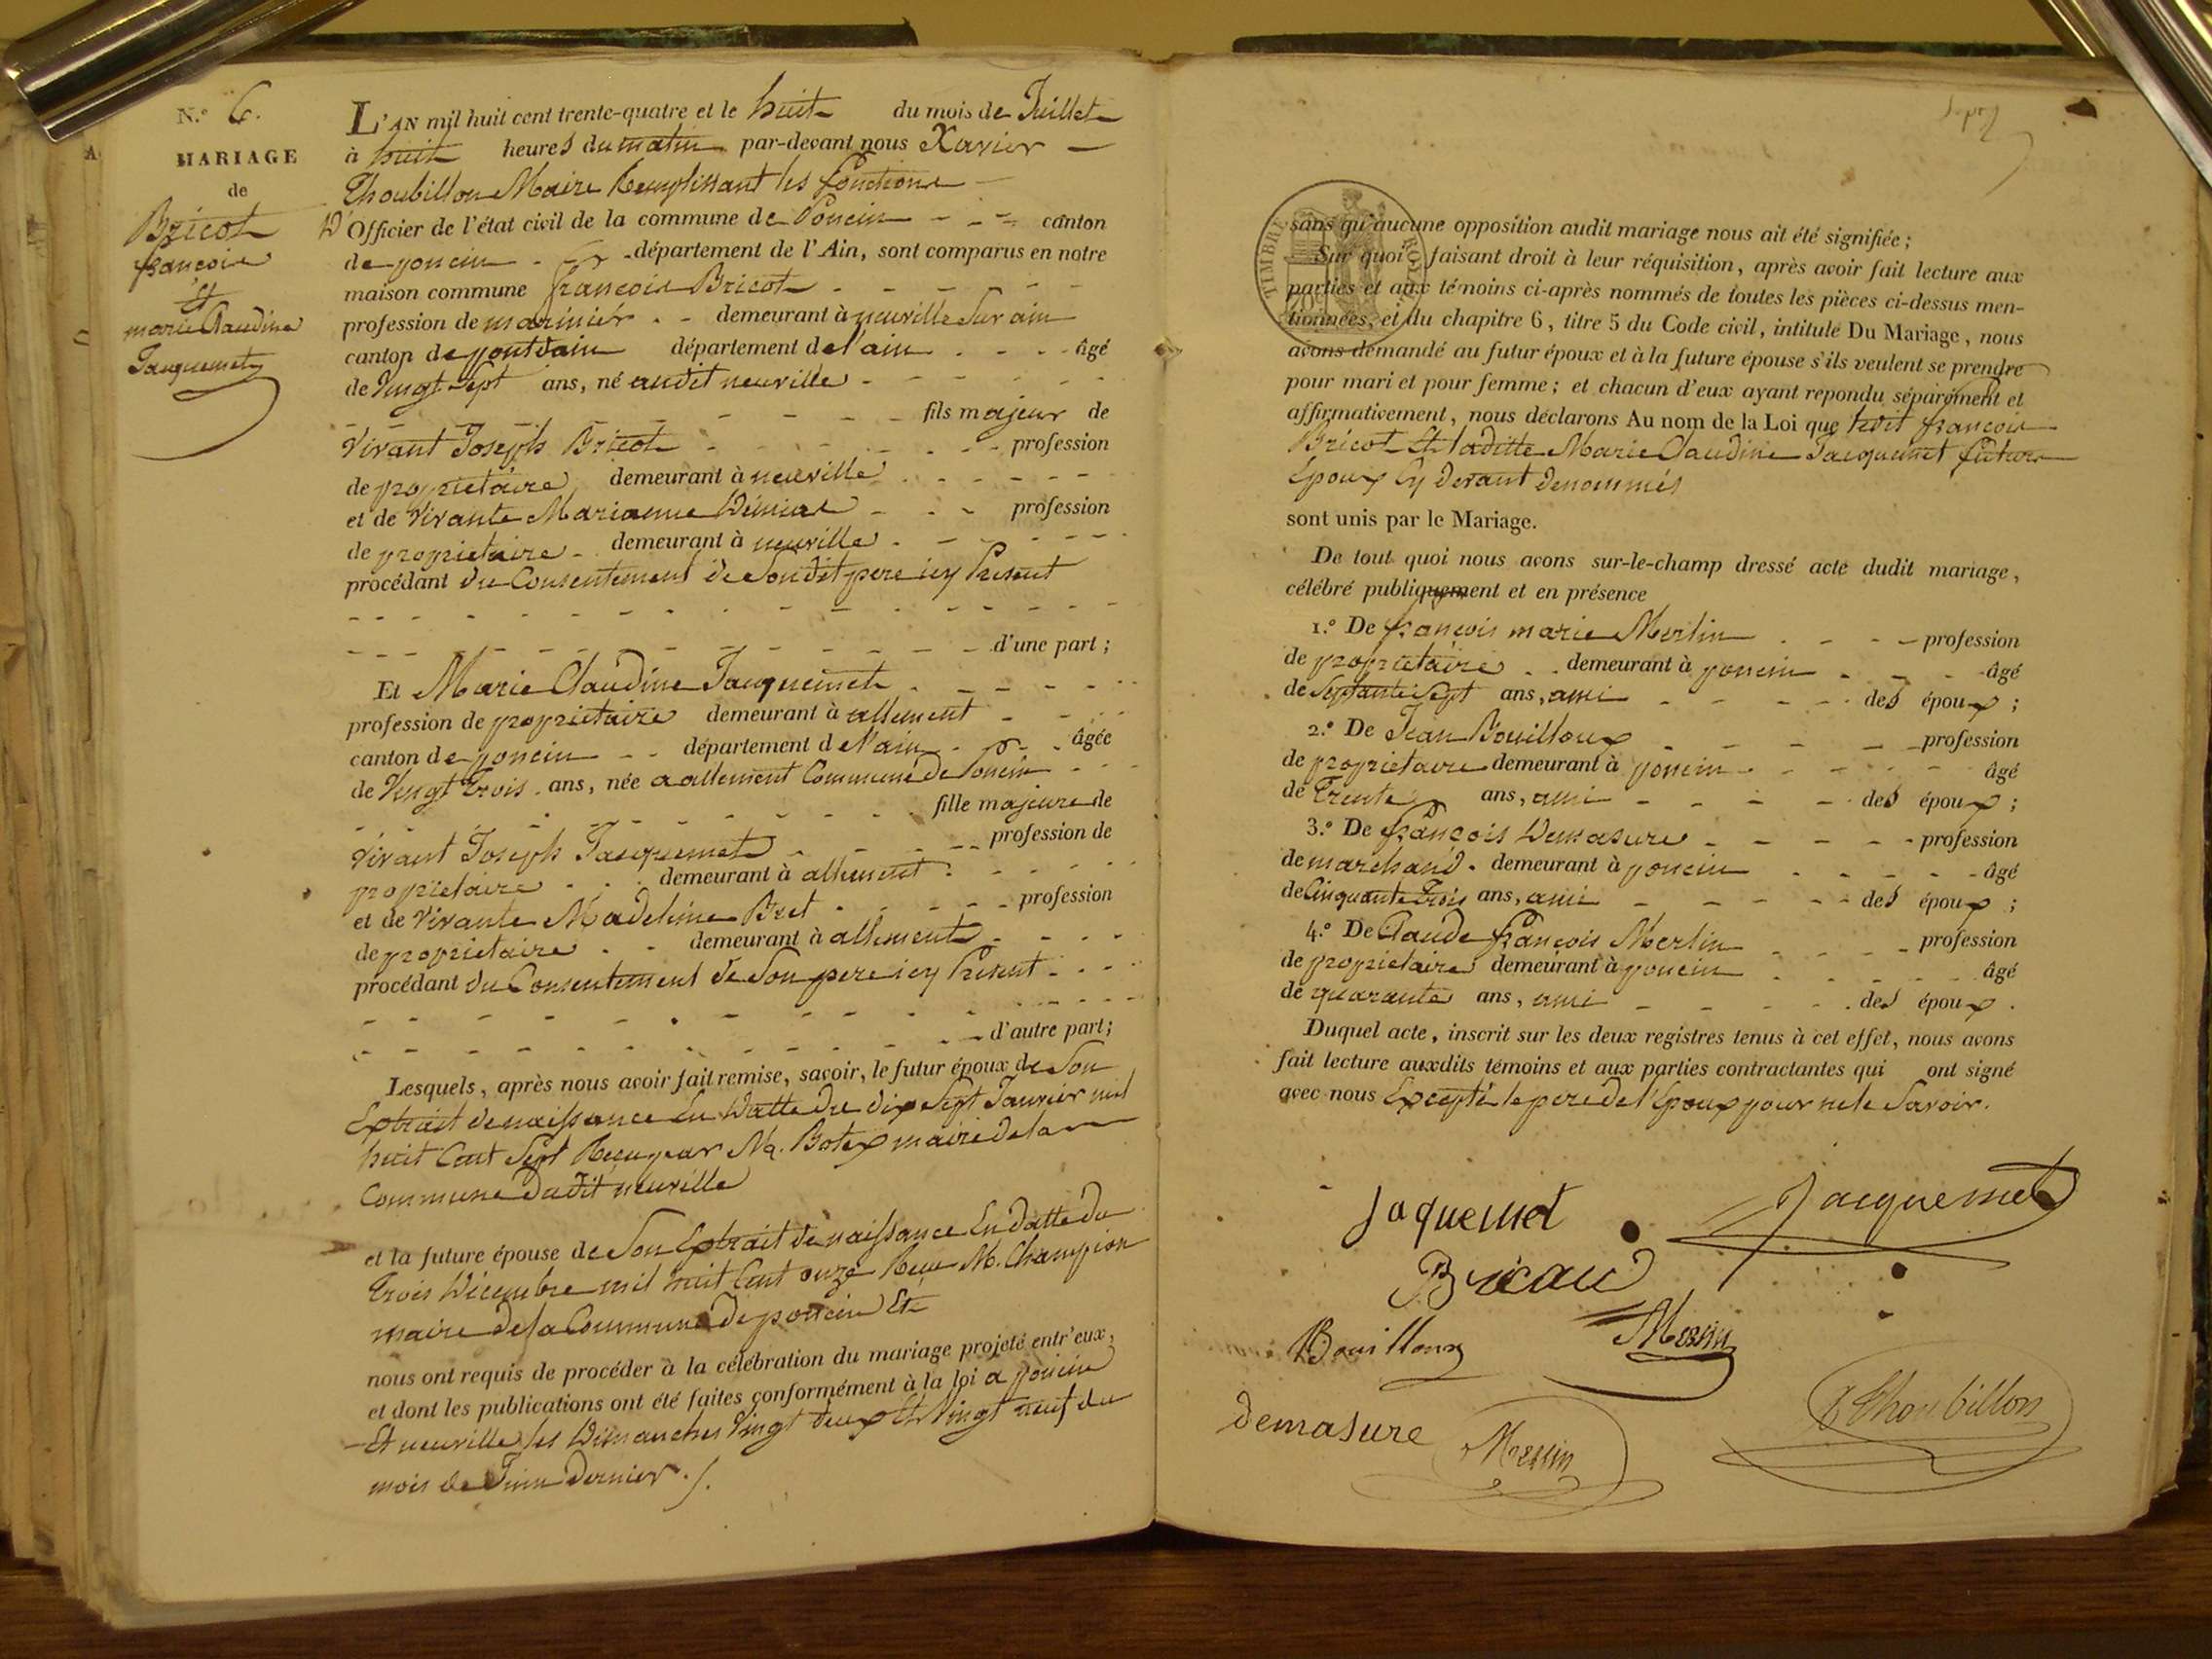 N.º 6.
MARIAGE
de
Bricot
françois
Et
marie Claudine
Jacquemet
L'AN mil huit cent trente-quatre et le huit du mois de Juillet
à huit heures du matin par-devant nous Xavier
Thoubillon Maire Remplissant les fonctions
D'Officier de l'état civil de la commune de Poncin canton
de poncin département de l'Ain, sont comparus en notre
maison commune françois Bricot
profession de marinier demeurant à neuville Sur ain
canton de pontdain département de l'ain âgé
de Vingt Sept ans, né audit neuville
fils majeur de
Vivant Joseph Bricot profession
de proprietaire demeurant à neuville
et de Vivante Marianne profession
de proprietaire demeurant à neuville
procédant du Consentement de Sondit pere icy Present
d'une part;
Et Marie Claudine Jacquemet
profession de proprietaire demeurant à allement
canton de poncin département de l'ain âgée
de Vingt Trois ans, née a allement Commune de Poncin
fille majeure de
Vivant Joseph Jacquemet profession de
proprietaire demeurant à allement
et de Vivante Madeleine Bret profession
de proprietaire demeurant à allement
procédant du Consentement de Son pere icy Present
d'autre part;
Lesquels, après nous avoir fait remise, savoir, le futur époux de Son
Extrait de naissance En Datte du dix Sept Janvier mil
huit Cent Sept Reçu par M. Botex maire de la
Commune dudit neuville
et la future épouse de Son Extrait de naissance En datte du
Trois Décembre mil huit Cent onze Recu M. Champion
maire de la Commune de poncin Et
nous ont requis de procéder à la célébration du mariage projeté entr'eux,
et dont les publications ont été faites conformément à la loi a poncin
Et neuville les Dimanches Vingt deux Et Vingt neuf du
mois de Juin Dernier
TIMBRE ROYAL
sans qu'aucune opposition audit mariage nous ait été signifiée;
Sur quoi faisant droit à leur réquisition, après avoir fait lecture aux
parties et aux témoins ci-après nommés de toutes les pièces ci-dessus men-
tionnées, et du chapitre 6, titre 5 du Code civil, intitulé Du Mariage, nous
avons demandé au futur époux et à la future épouse s'ils veulent se prendre
pour mari et pour femme; et chacun d'eux ayant repondu séparément et
affirmativement, nous déclarons Au nom de la Loi que ledit françois
Bricot Et laditte Marie Claudine Jacquemet futurs
Epoux Cy Devant Denommés
sont unis par le Mariage.
De tout quoi nous avons sur-le-champ dressé acte dudit mariage,
célébré publiquement et en présence
1.º De françois marie Merlin profession
de proprietaire demeurant à poncin âgé
de Septante Sept ans, ami des époux;
2.º De Jean Bouilloux profession
de proprietaire demeurant à poncin âgé
de Trente ans, ami des époux;
3.º De françois Demasure profession
de marchand demeurant à poncin âgé
de Cinquante Trois ans, ami des époux;
4.º De Claude françois Merlin profession
de proprietaire demeurant à poncin âgé
de quarante ans, ami des époux.
Duquel acte, inscrit sur les deux registres tenus à cet effet, nous avons
fait lecture auxdits témoins et aux parties contractantes qui ont signé
avec nous Excepté le pere de l'Epoux pour ne le Savoir.
Jaquemet Jacquemet
Bricau
Bouilloux Merlin
demasure Merlin Thoubillon